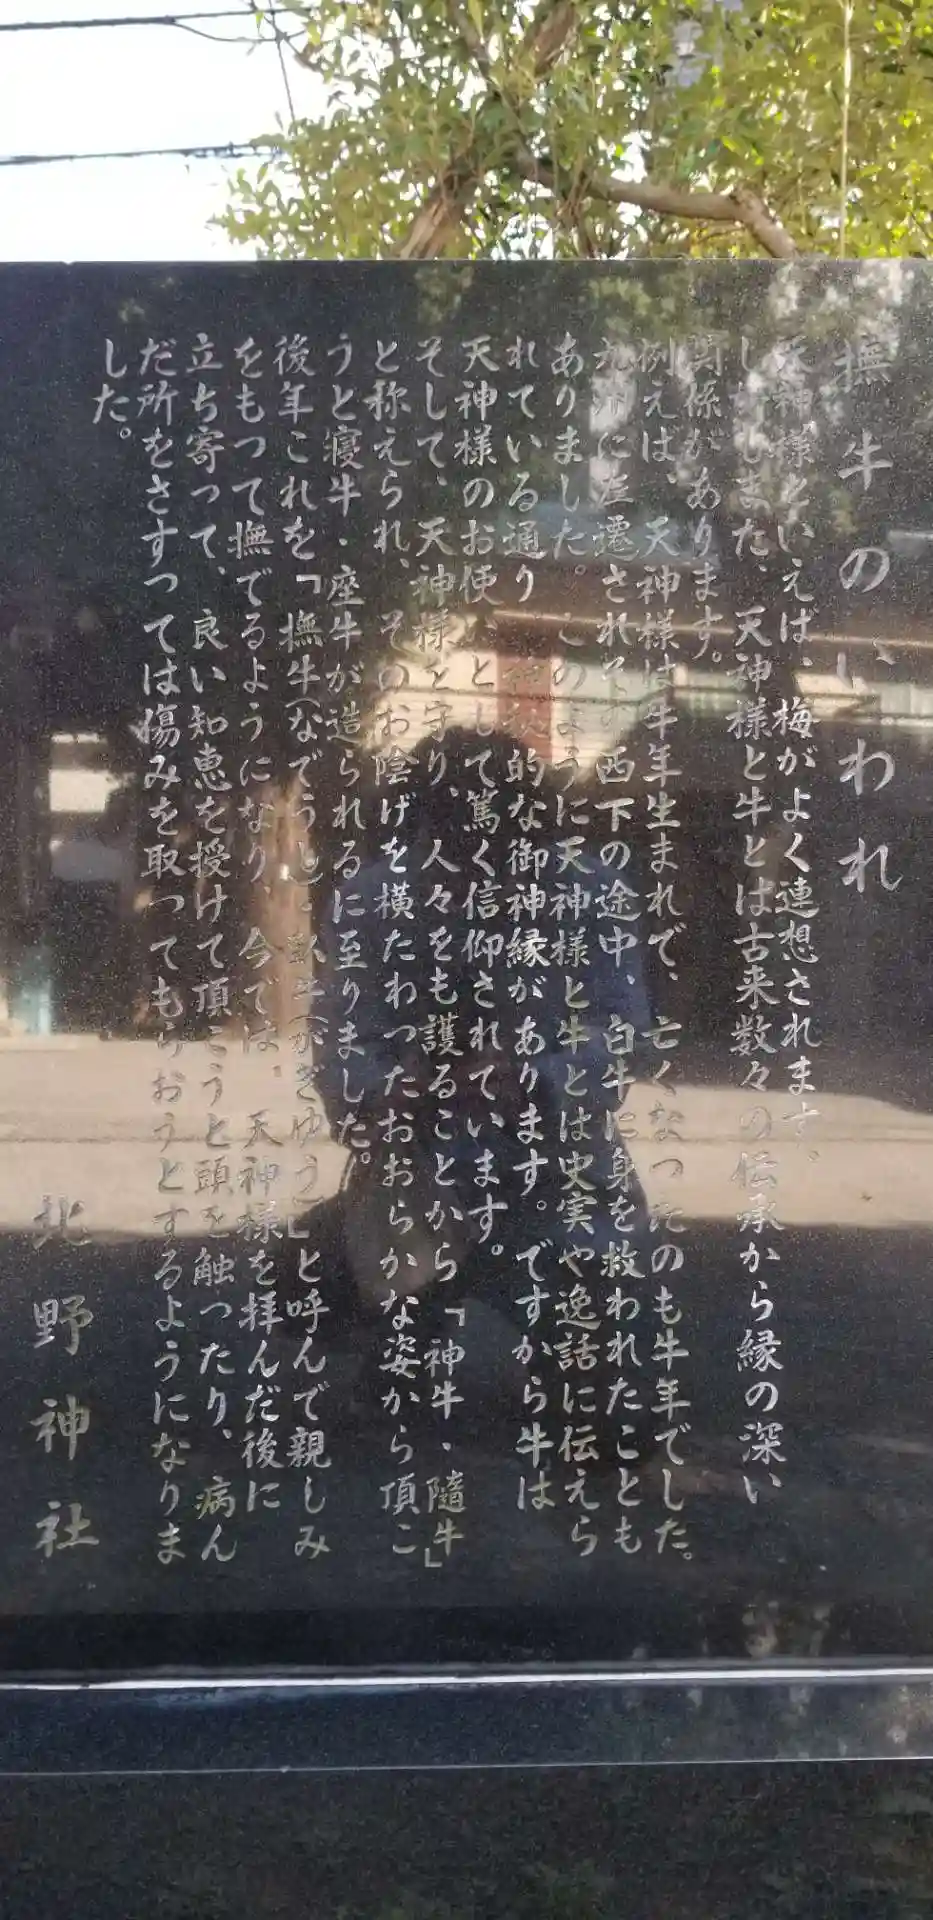 撫牛のいわれ
天神様といえば、梅がよく連想されます。
しかしまた、天神様と牛とは古来数々の伝承から縁の深い
関係があります。
例えば、天神様は牛年生まれで、亡くなったのも牛年でした。
九州に左遷されその西下の途中、白牛に身を救われたことも
ありました。このように天神様と牛とは史実や逸話に伝えら
れている通り 的な御神縁があります。ですから牛は
天神様のお使いとして篤く信仰されています。
そして、天神様を守り、人々をも護ることから「神牛・隨牛」
と称えられ、そのお陰げを横たわつたおおらかな姿から頂こ
うと寝牛・座牛が造られるに至りました。
後年これを「撫牛(なでうし)・臥牛(がぎゆう)」と呼んで親しみ
をもつて撫でるようになり、今では、天神様を拝んだ後に
立ち寄って、良い知恵を授けて頂こうと頭を触つたり、病ん
だ所をさすつては傷みを取つてもらおうとするようになりま
した。
北野神社